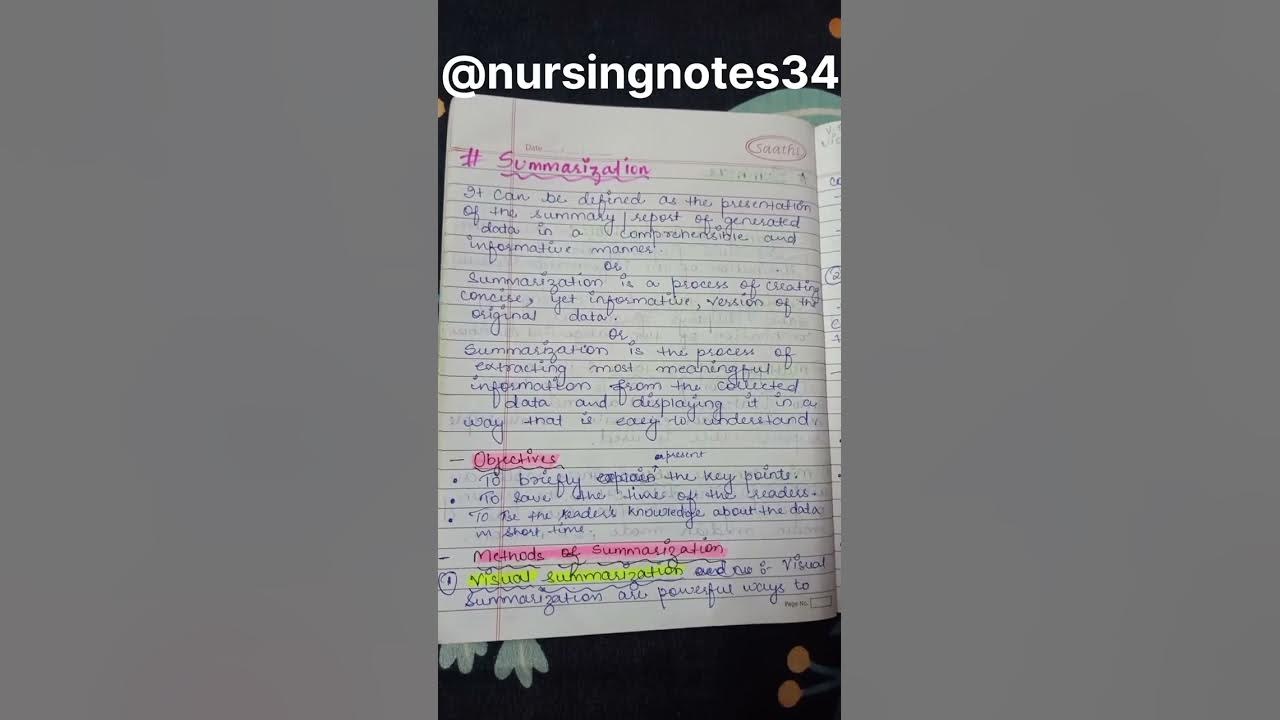 @nursingnotes34
Date
Saathi
# Summarization
It can be defined as the presentation
of the summary / report of generated
data in a comprehensible and
informative manner.
or
Summarization is a process of creating
concise, yet informative, version of the
original data.
or
Summarization is the process of
extracting most meaningful
information from the collected
data and displaying it in a
way that is easy to understand.
- Objectives
present
• To briefly explain the key points.
• To save the time of the readers.
• To the reader's knowledge about the data
in short time.
- Methods of Summarization
① Visual summarization :- Visual
summarization are powerful ways to
Page No.